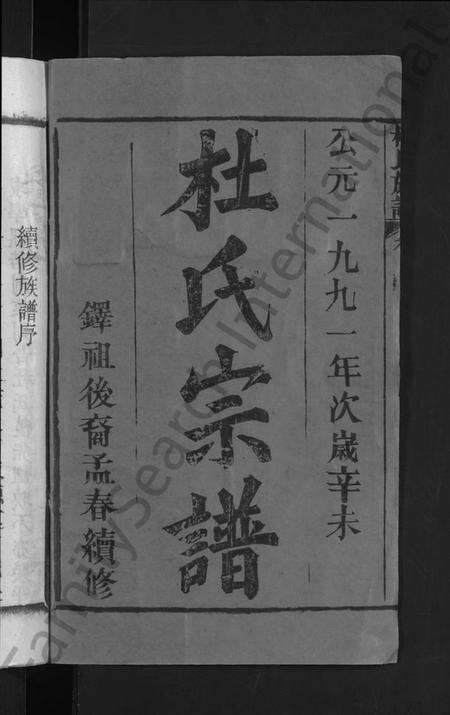 公元一九九一年次歲辛未
杜氏宗譜
鐸祖後裔孟春續修
續修族譜序
FamilySearch International